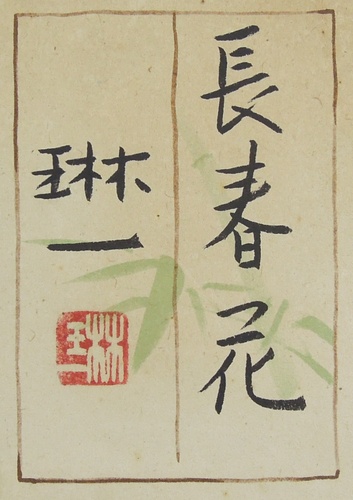 長春花
琳一
琳一